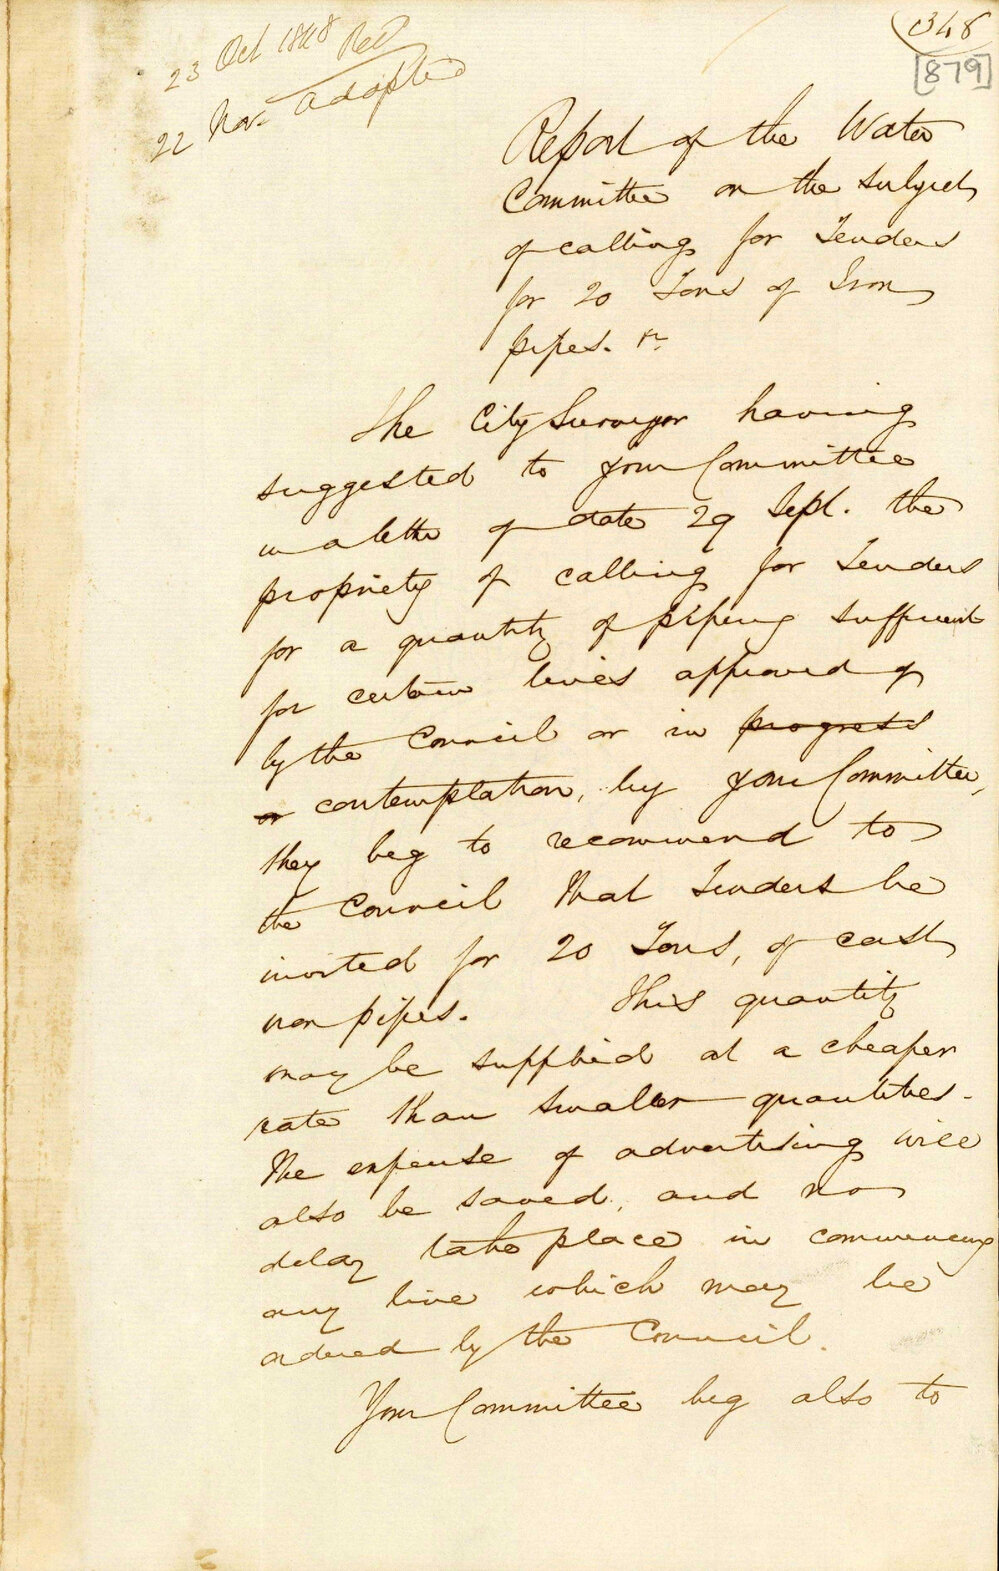 348
[879]
23 Oct 1848 Recd
22 Nov. adopted
Report of the Water
Committee on the subject
of calling for Tenders
for 20 Tons of Iron
pipes. &c
The City Surveyor having
suggested to your Committee
in a letter of date 29 Sept. the
propriety of calling for Tenders
for a quantity of piping sufficient
for certain lines approved of
by the Council or in progress
or contemplation, by your Committee,
they beg to recommend to
the Council that Tenders be
invited for 20 Tons, of cast
iron pipes. This quantity
may be supplied at a cheaper
rate than smaller quantities.
The expense of advertising will
also be saved, and no
delay take place in commencing
any line which may be
ordered by the Council.
Your Committee beg also to